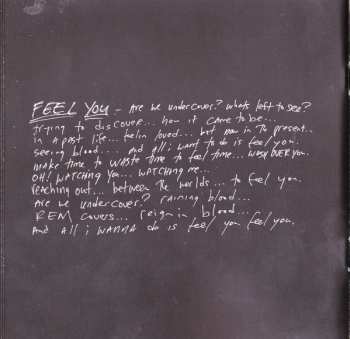 FEEL YOU - Are we undercover? whats left to see?
trying to discover... how it came to be...
in a past life... feelin loved... but now in the present..
seeing blood.... And all i want to do is feel you.
make time to waste time to feel time... wash over you.
OH! WATCHING YOU... WATCHING ME...
reaching out... between the worlds... to feel you.
Are we undercover? raining blood...
REM covers... reign in blood...
And all i WANNA do is feel you feel you.